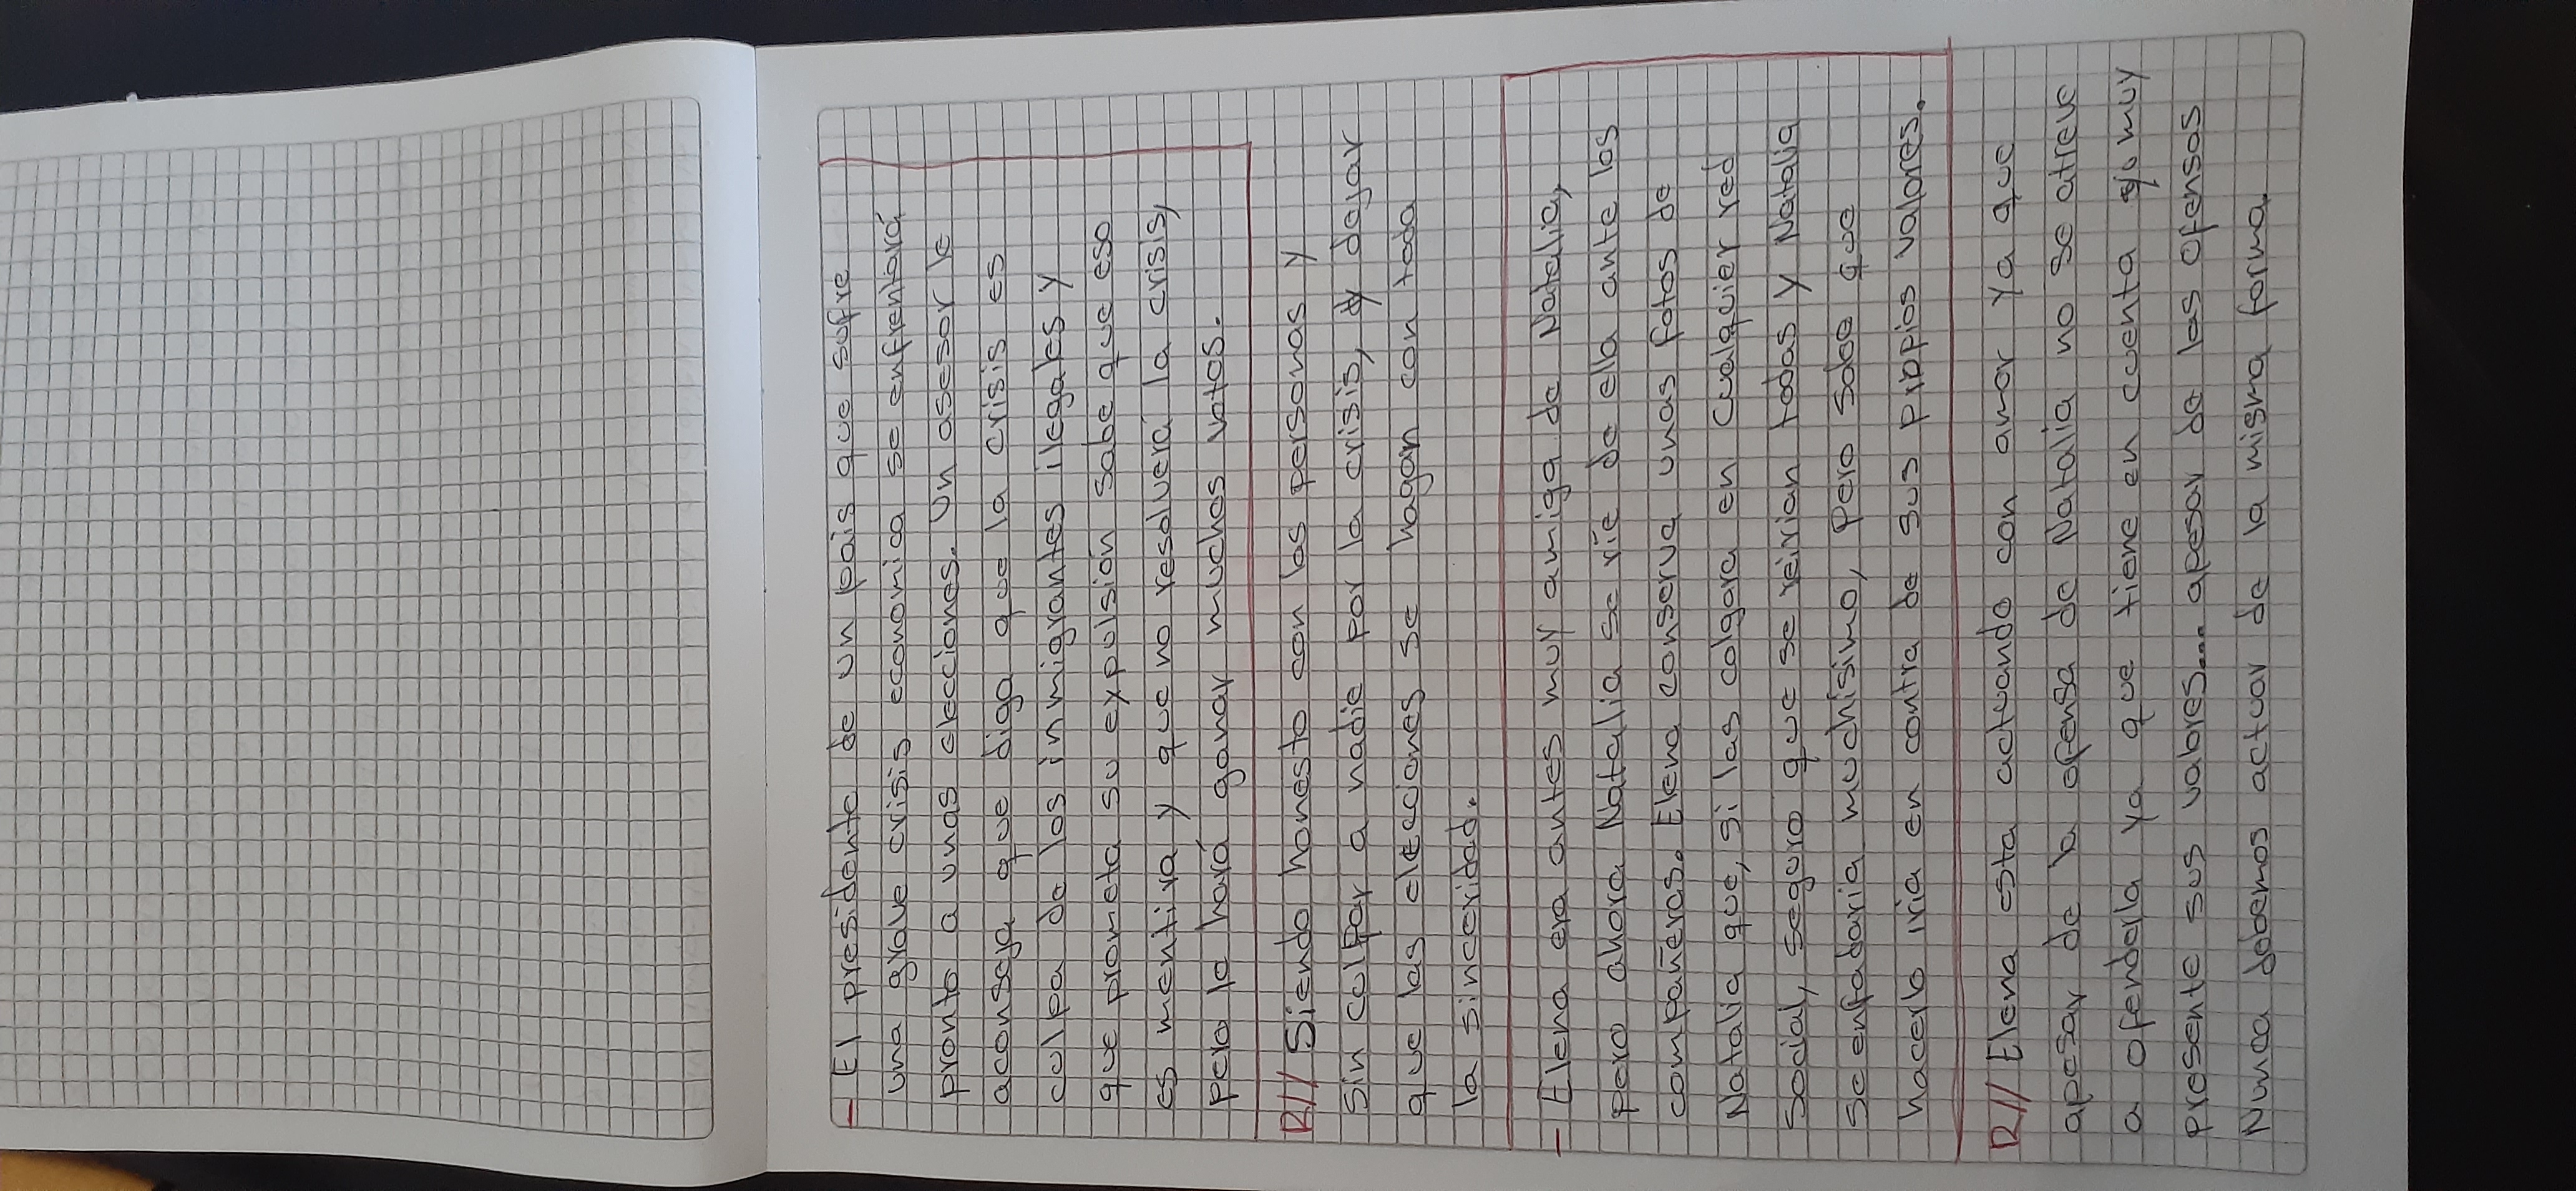 - El presidente de un pais que sufre
una grave crisis economica se enfrentará
pronto a unas elecciones. Un asesor le
aconseja que diga que la crisis es
culpa de los inmigrantes ilegales y
que prometa su expulsión sabe que eso
es mentira y que no resolverá la crisis,
pero le hará ganar muchos votos.
R// Siendo honesto con las personas y
sin culpar a nadie por la crisis, y dejar
que las elecciones se hagan con toda
la sinceridad.
- Elena era antes muy amiga de Natalia,
pero ahora Natalia se rie de ella ante los
compañeros. Elena conserva unas fotos de
Natalia que, si las colgara en cualquier red
social, seguro que se reirian todos y Natalia
se enfadaria muchísimo, pero sabe que
hacerlo iria en contra de sus propios valores.
R// Elena esta actuando con amor ya que
apesar de la ofensa de Natalia no se atreve
a ofenderla ya que tiene en cuenta y muy
presente sus valores... apesar de las ofensas
Nunca debemos actuar de la misma forma